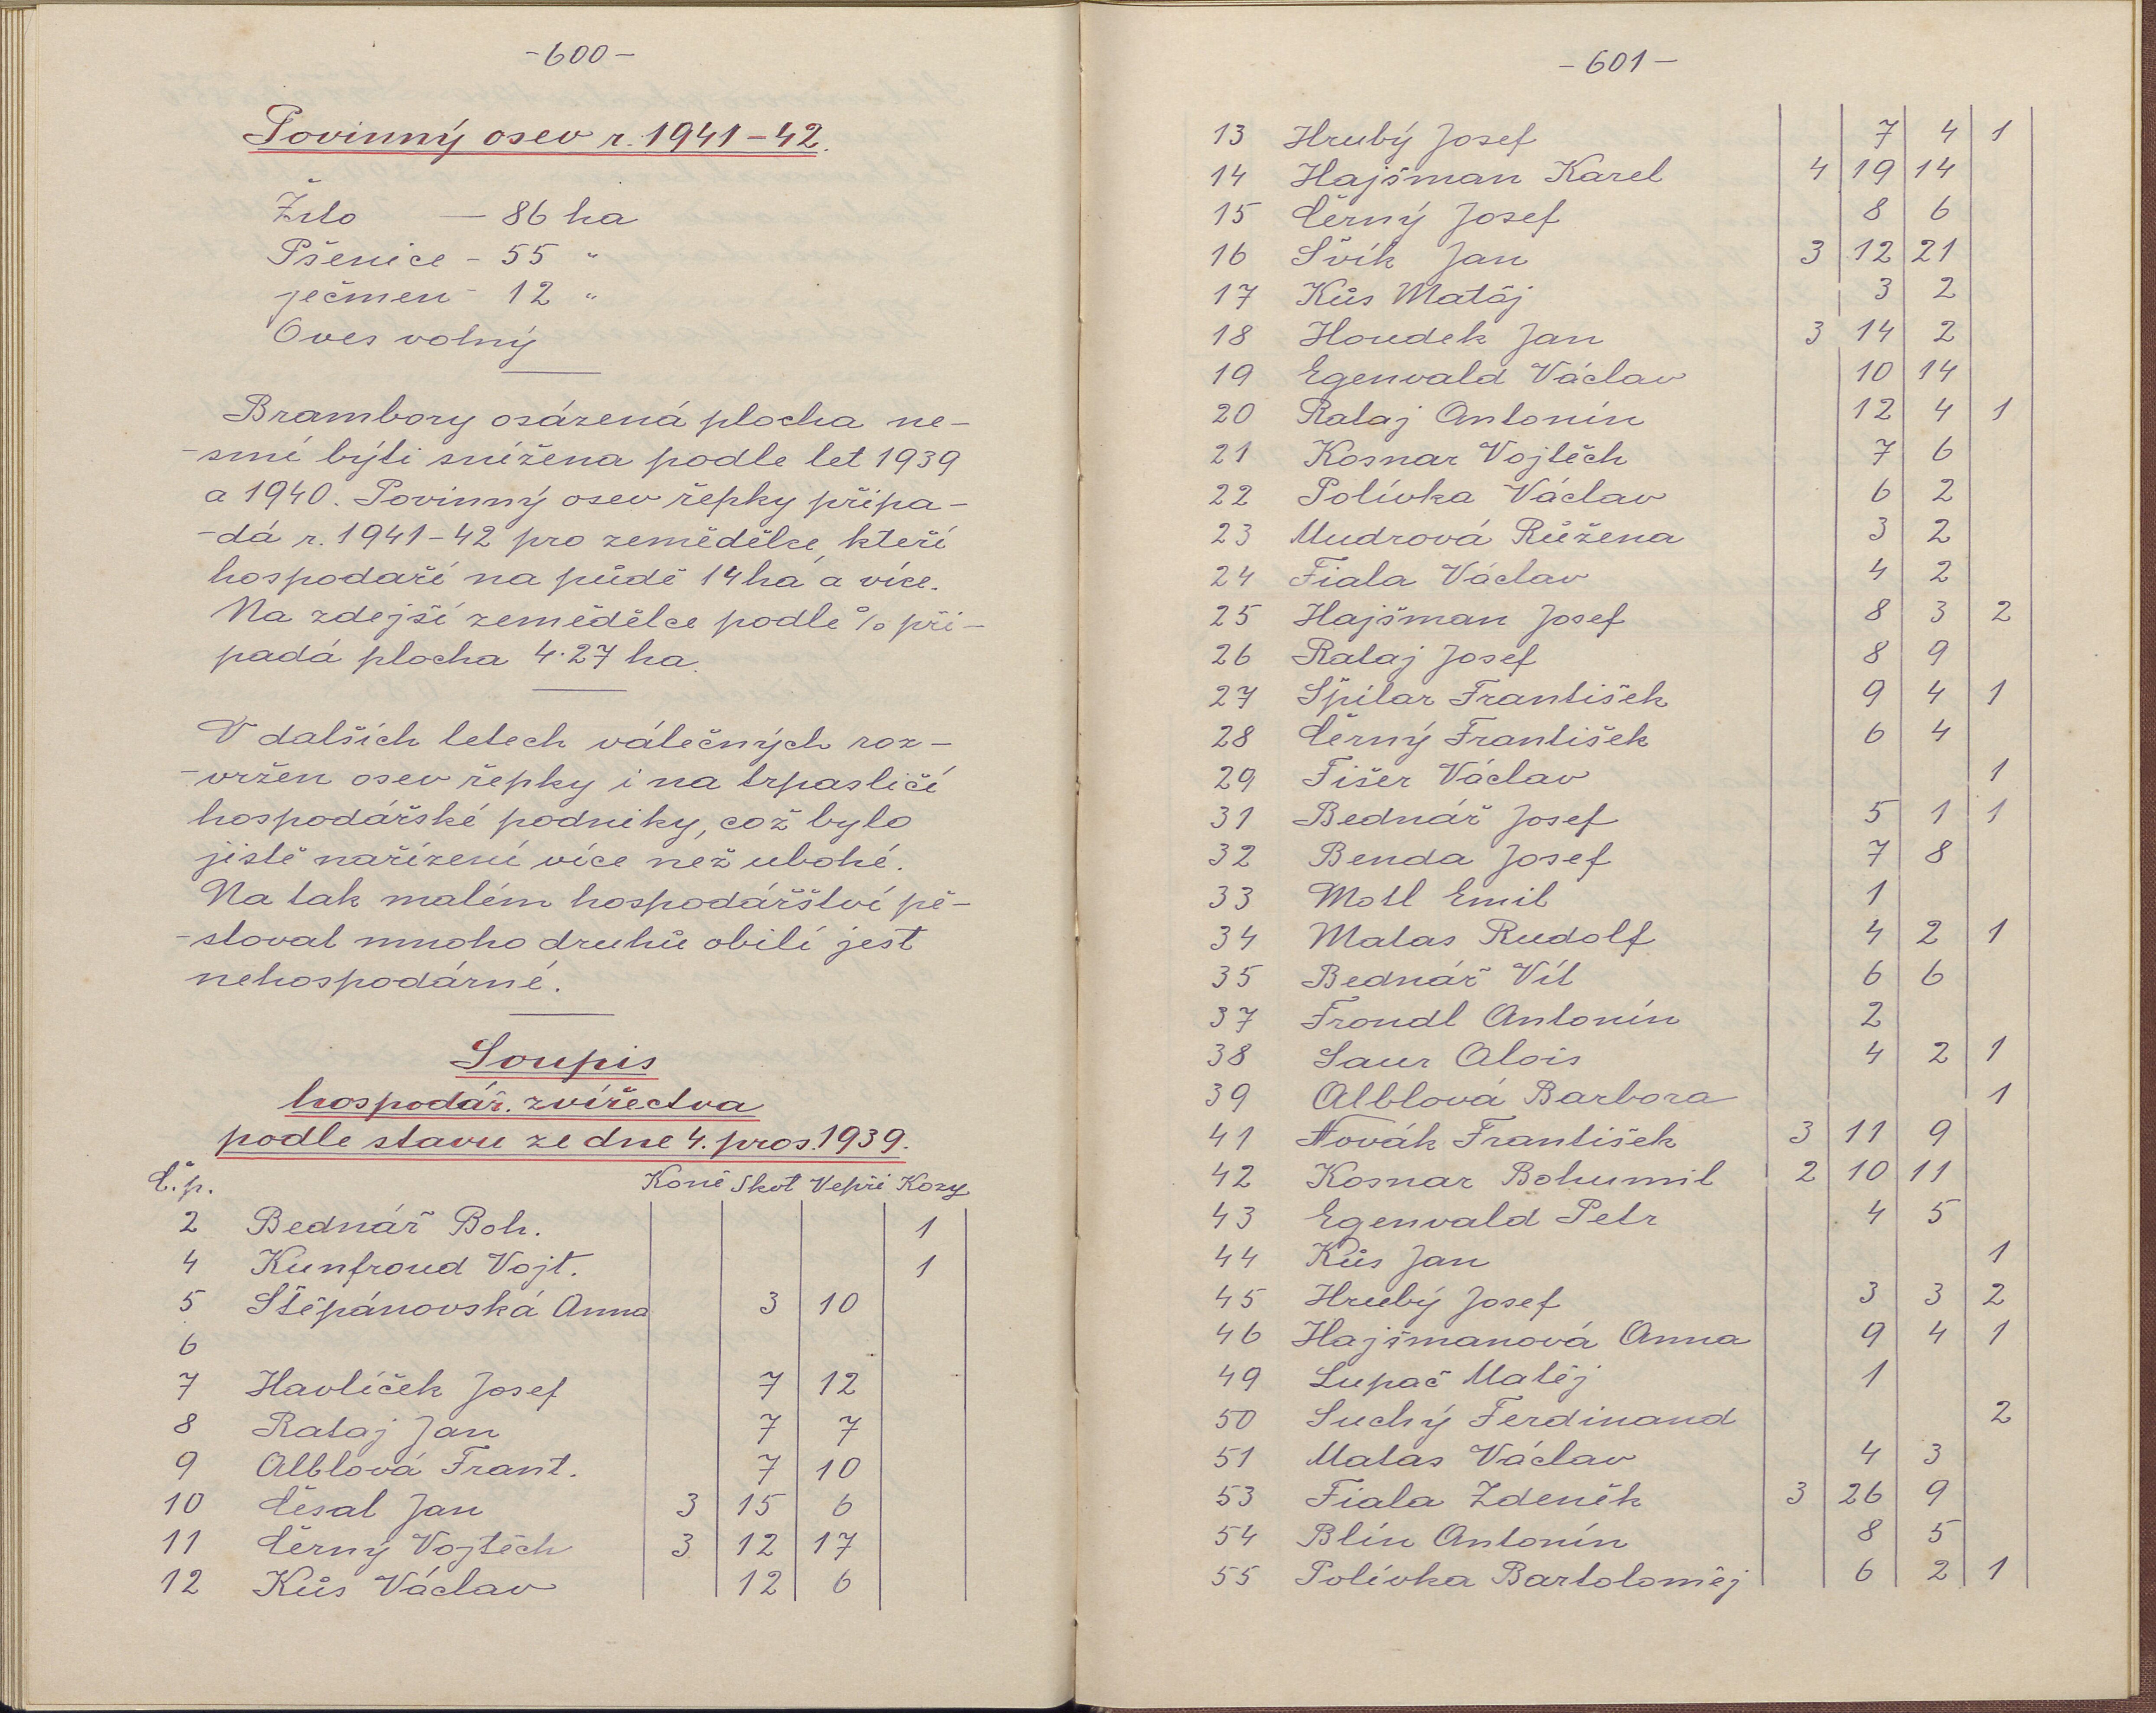 -600-
Povinný osev r. 1941-42.
Žito — 86 ha
Pšenice - 55 "
ječmen - 12 "
Oves volný
Brambory osázená plocha ne-
-smí býti snížena podle let 1939
a 1940. Povinný osev řepky připa-
-dá r. 1941-42 pro zemědělce, kteří
hospodaří na půdě 14 há a více.
Na zdejší zemědělce podle % při-
padá plocha 4.27 ha.
V dalších letech válečných roz-
-vržen osev řepky i na trpasličí
hospodářské podniky, což bylo
jistě nařízení více než ubohé.
Na tak malém hospodářství pě-
-stovat mnoho druhů obilí jest
nehospodárné.
Soupis
hospodář. zvířectva
podle stavu ze dne 4. pros. 1939.
Č.p. Koně Skot Vepři Kozy
2 Bednář Boh. 1
4 Kunfroud Vojt. 1
5 Štěpánovská Anna 3 10
6
7 Havlíček Josef 7 12
8 Rataj Jan 7 7
9 Alblová Frant. 7 10
10 Česal Jan 3 15 6
11 Černý Vojtěch 3 12 17
12 Kůs Václav 12 6
-601-
13 Hrubý Josef 7 4 1
14 Hajšman Karel 4 19 14
15 Černý Josef 8 6
16 Švík Jan 3 12 21
17 Kůs Matěj 3 2
18 Houdek Jan 3 14 2
19 Egenvald Václav 10 14
20 Rataj Antonín 12 4 1
21 Kosnar Vojtěch 7 6
22 Polívka Václav 6 2
23 Mudrová Růžena 3 2
24 Fiala Václav 4 2
25 Hajšman Josef 8 3 2
26 Rataj Josef 8 9
27 Špilar František 9 4 1
28 Černý František 6 4
29 Fišer Václav 1
31 Bednář Josef 5 1 1
32 Benda Josef 7 8
33 Motl Emil 1
34 Matas Rudolf 4 2 1
35 Bednář Vít 6 6
37 Froudl Antonín 2
38 Saur Alois 4 2 1
39 Alblová Barbora 1
41 Novák František 3 11 9
42 Kosnar Bohumil 2 10 11
43 Egenvald Petr 4 5
44 Kůs Jan 1
45 Hrubý Josef 3 3 2
46 Hajšmanová Anna 9 4 1
49 Lupač Matěj 1
50 Suchý Ferdinand 2
51 Matas Václav 4 3
53 Fiala Zdeněk 3 26 9
54 Blín Antonín 8 5
55 Polívka Bartoloměj 6 2 1